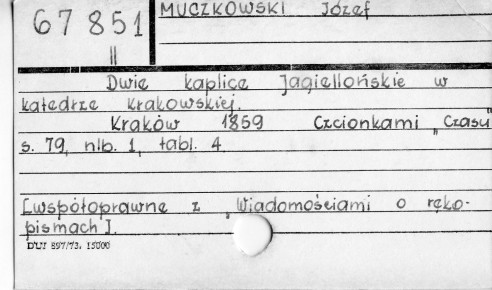 67851
II
MUCZKOWSKI Józef
Dwie kaplice Jagiellońskie w
katedrze krakowskiej.
Kraków 1859 Czcionkami „Czasu"
s. 79, nlb. 1, tabl. 4.
[współoprawne z „Wiadomościami o ręko-
pismach].
DUJ 897/73. 15000